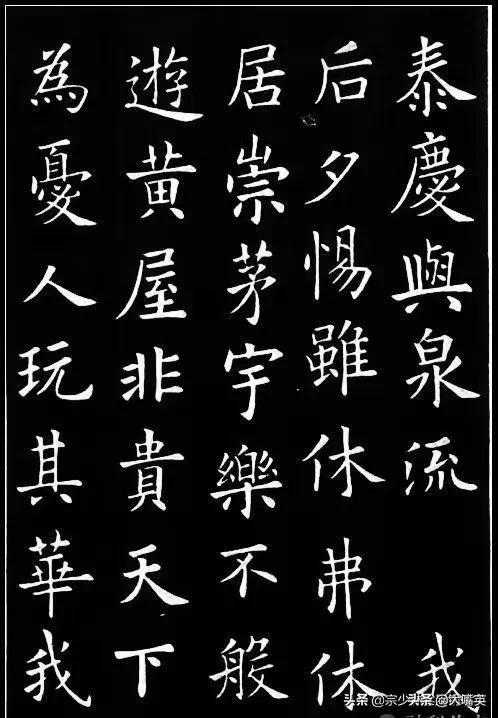 泰慶與泉流 我
后夕惕雖休弗休
居崇茅宇樂不般
遊黄屋非貴天下
為憂人玩其華我
头条 @宗少头条 @铁嘴英